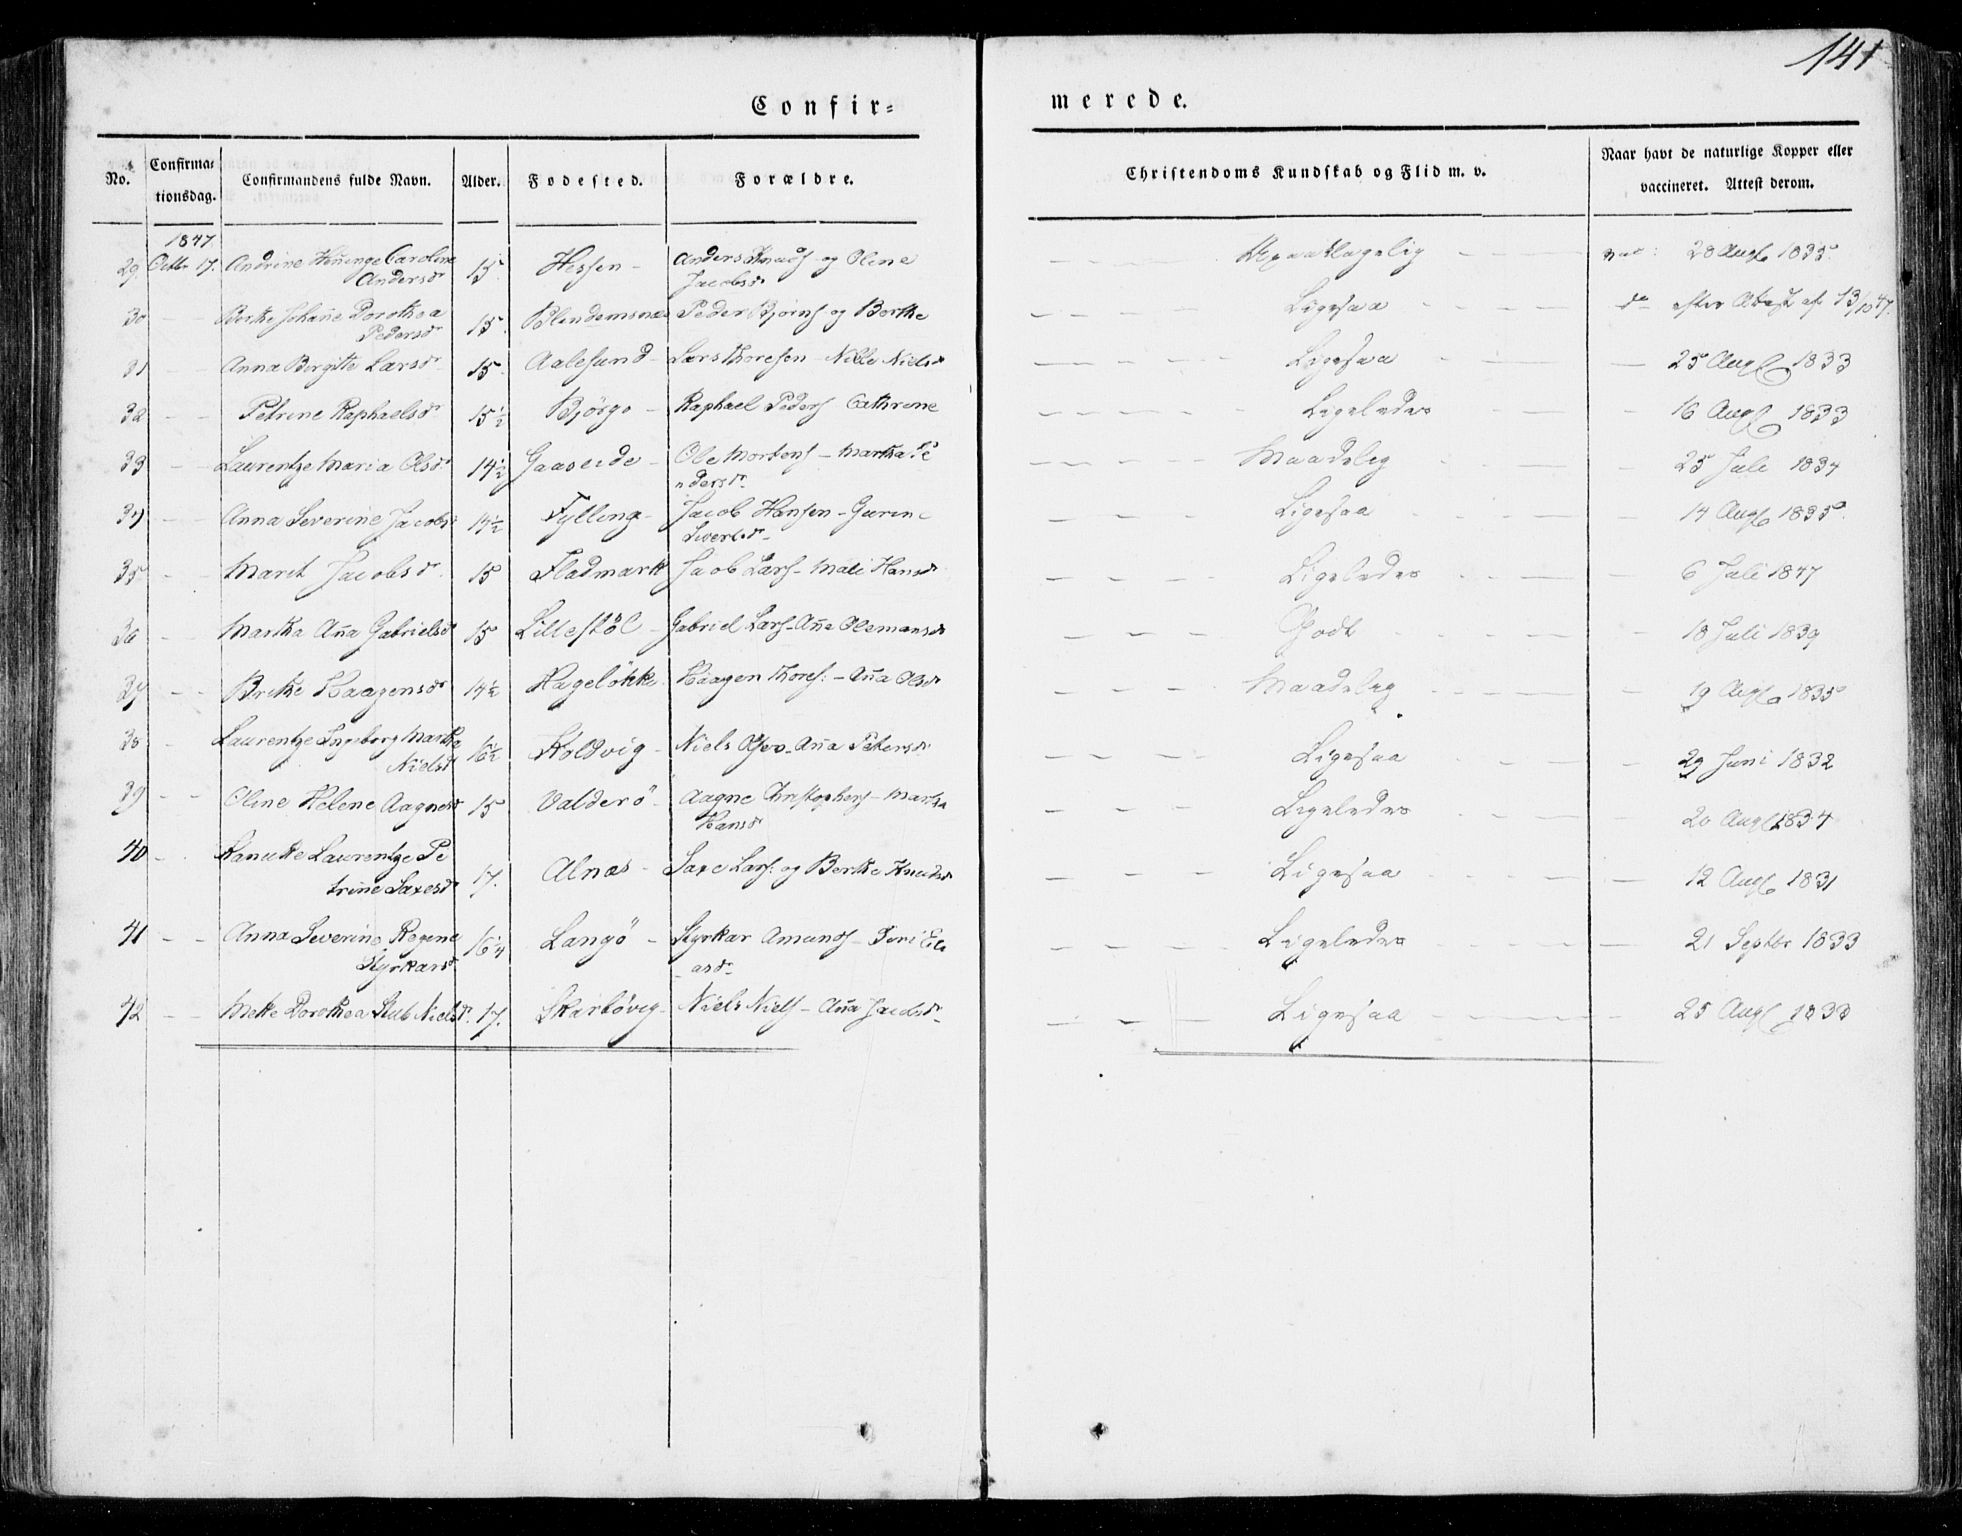 141
Confir= merede.
No. Confirma= tionsdag. Confirmandens fulde Navn. Alder. Fødested. Forældre. Christendoms Kundskab og Flid m. v. Naar havt de naturlige Kopper eller vaccineret. Attest derom.
1847
29. Octbr 17. Andrine Caroline 15 Hessen - Anders Knuds og Oline 28 Aug 1835
Andersd Jacobsd
30 Berthe Johanne Dorothea 15 Blendemsnæs Peder Bjørns og Berthe Ligesaa do efter Attest af 13/10 47.
Pedersd
31 Anna Birgitte Larsd 15 Aalesund - Lars Thoresen - Nille Nielsd Ligesaa 25 Aug 1833
32 Petrine Raphaelsd 15½ Bjørge - Raphael Peders Cathrine Ligeledes 16 Aug 1833
33 Laurentze Maria Olsd 14½ Gaaseide - Ole Mortens - Martha Pe Maadelig 25 Juli 1834
dersd
34 Anna Severine Jacobs 14½ Fylling - Jacob Hansen - Ligesaa 14 Aug 1835
Siversd
35 Marit Jacobsd 15 Fladmark Jacob Lars - Mali Hansd Ligeledes 6 Juli 1847
36 Martha Aña Gabrielsd 15 Lillestøl - Gabriel Lars - Añe Olemansd Godt 18 Juli 1839
37 Brithe Haagensd 14½ Hageløkke Haagen Thores: - Aña Olsd Maadelig 19 Aug 1835
38 Laurentze Ingeborg Martha 16½ Koldvig - Niels - Aña Petersd Ligesaa 29 Juni 1832
Nielsd
39 Oline Helene Aagnesd 15 Valderö - Aagne Christophers - Martha Ligeledes 20 Aug 1834
Hansd
40 Laurentze Pe 17. Alnæs - Saxe Lars: og Berthe Knudsd Ligesaa 12 Aug 1831
trine Saxesd
41 Anna Severine Regine 16¼ Langö - Styrkar Amunds - Eli Ligeledes 21 Septbr 1833
Styrkarsd asd
42 Mette Dorothea Stub Nielsd. 17. Skarbövig - Niels Niels - Aña Jacobsd Ligesaa 25 Aug 1833